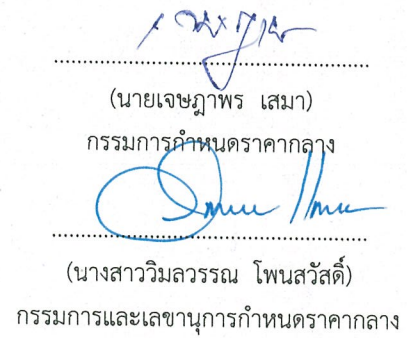 (นายเจษฎาพร เสมา)
กรรมการกำหนดราคากลาง
(นางสาววิมลวรรณ โพนสวัสดิ์)
กรรมการและเลขานุการกำหนดราคากลาง